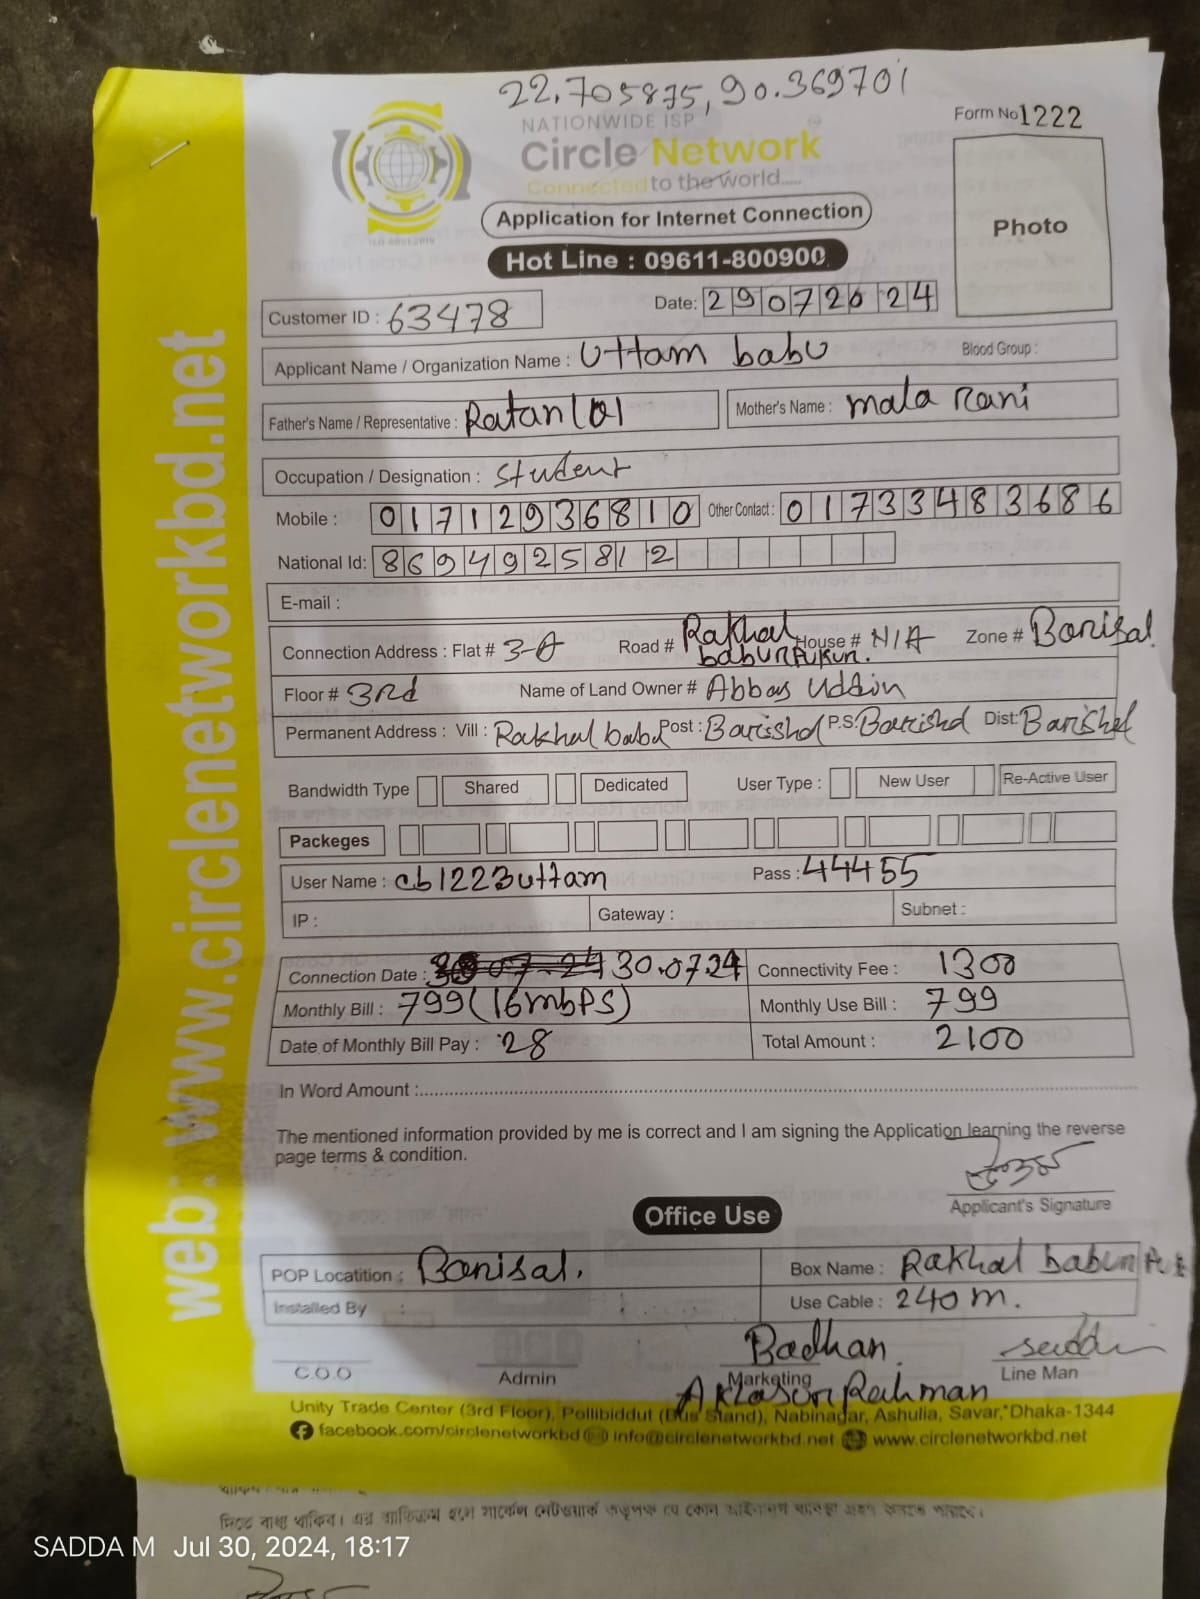 22.705875, 90.369701
NATIONWIDE ISP
Form No 1222
Circle Network
Connected to the world.....
Application for Internet Connection
Photo
Hot Line : 09611-800900
Customer ID : 63478
Date: 29072024
Applicant Name / Organization Name : Uttam babu Blood Group :
Father's Name / Representative : Ratan lal Mother's Name : mala rani
Occupation / Designation : Student
Mobile : 01712936810 Other Contact : 01733483686
National Id: 8694925812
E-mail :
Connection Address : Flat # 3-A Road # Rakhal babur Pukur. House # N/A Zone # Barisal.
Floor # 3rd Name of Land Owner # Abbas Uddin
Permanent Address : Vill : Rakhal babu Post : Barishal P.S: Barishal Dist: Barishal
Bandwidth Type Shared Dedicated User Type : New User Re-Active User
Packeges
User Name : cb1223uttam Pass : 44455
IP : Gateway : Subnet :
Connection Date : 30.07.24 Connectivity Fee : 1300
Monthly Bill : 799 (16mbPS) Monthly Use Bill : 799
Date of Monthly Bill Pay : 28 Total Amount : 2100
In Word Amount :
The mentioned information provided by me is correct and I am signing the Application learning the reverse
page terms & condition.
Applicant's Signature
Office Use
POP Locatition : Barisal. Box Name : Rakhal babur
Installed By : Use Cable : 240 m.
Badhan.
C.O.O Admin Marketing Line Man
Rahman
Unity Trade Center (3rd Floor), Pollibiddut (Bus Stand), Nabinagar, Ashulia, Savar, Dhaka-1344
facebook.com/circlenetworkbd info@circlenetworkbd.net www.circlenetworkbd.net
web: www.circlenetworkbd.net
SADDA M Jul 30, 2024, 18:17